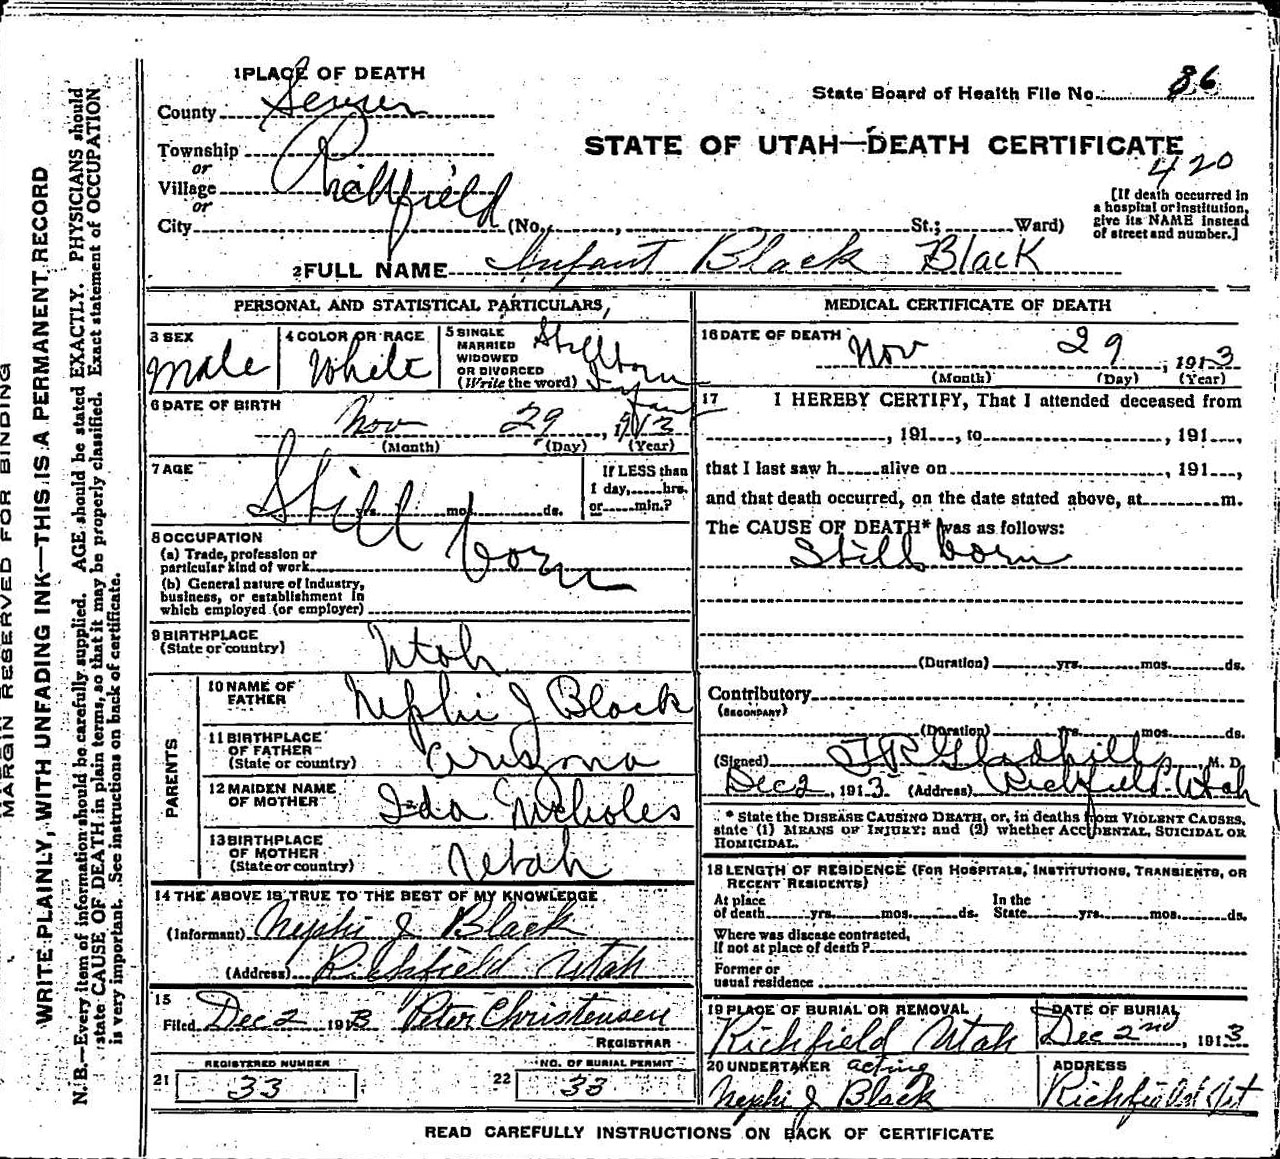 1 PLACE OF DEATH
County Sevier
State Board of Health File No. 86
STATE OF UTAH—DEATH CERTIFICATE
420
Township
or
Village Richfield
or
City (No. , St.; Ward)
[If death occurred in
a hospital or institution,
give its NAME instead
of street and number.]
2 FULL NAME Infant Black Black
PERSONAL AND STATISTICAL PARTICULARS
3 SEX
male
4 COLOR OR RACE
White
5 SINGLE
MARRIED
WIDOWED
OR DIVORCED
(Write the word)
Stillborn
Infant
6 DATE OF BIRTH
Nov 29, 1913
(Month) (Day) (Year)
7 AGE
Still born
yrs. mos. ds.
If LESS than
1 day, hrs.
or min.?
8 OCCUPATION
(a) Trade, profession or
particular kind of work
(b) General nature of industry,
business, or establishment in
which employed (or employer)
9 BIRTHPLACE
(State or country)
Utah
PARENTS
10 NAME OF
FATHER
Nephi J Black
11 BIRTHPLACE
OF FATHER
(State or country)
Arizona
12 MAIDEN NAME
OF MOTHER
Ida Nicholes
13 BIRTHPLACE
OF MOTHER
(State or country)
Utah
14 THE ABOVE IS TRUE TO THE BEST OF MY KNOWLEDGE
(Informant) Nephi J Black
(Address) Richfield Utah
15
Filed Dec 2 1913 Peter Christensen
REGISTRAR
REGISTERED NUMBER
21 33
NO. OF BURIAL PERMIT
22 33
MEDICAL CERTIFICATE OF DEATH
16 DATE OF DEATH
Nov 29, 1913
(Month) (Day) (Year)
17 I HEREBY CERTIFY, That I attended deceased from
, 191 , to , 191 ,
that I last saw h alive on , 191 ,
and that death occurred, on the date stated above, at m.
The CAUSE OF DEATH* was as follows:
Still born
(Duration) yrs. mos. ds.
Contributory
(SECONDARY)
(Duration) yrs. mos. ds.
(Signed) J R Gledhill, M. D.
Dec 2, 1913. (Address) Richfield Utah
* State the DISEASE CAUSING DEATH, or, in deaths from VIOLENT CAUSES,
state (1) MEANS OF INJURY; and (2) whether ACCIDENTAL, SUICIDAL OR
HOMICIDAL.
18 LENGTH OF RESIDENCE (FOR HOSPITALS, INSTITUTIONS, TRANSIENTS, OR
RECENT RESIDENTS)
At place
of death yrs. mos. ds.
In the
State yrs. mos. ds.
Where was disease contracted,
if not at place of death?
Former or
usual residence
19 PLACE OF BURIAL OR REMOVAL
Richfield Utah
DATE OF BURIAL
Dec 2nd, 1913
20 UNDERTAKER acting
Nephi J Black
ADDRESS
Richfield Ut
READ CAREFULLY INSTRUCTIONS ON BACK OF CERTIFICATE
MARGIN RESERVED FOR BINDING
WRITE PLAINLY, WITH UNFADING INK—THIS IS A PERMANENT RECORD
N. B.—Every item of information should be carefully supplied. AGE should be stated EXACTLY. PHYSICIANS should
state CAUSE OF DEATH in plain terms, so that it may be properly classified. Exact statement of OCCUPATION
is very important. See instructions on back of certificate.